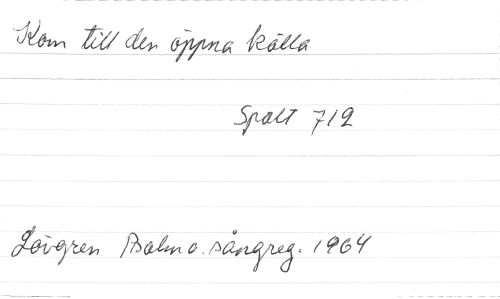 Kom till den öppna källa
Spalt 712
Lövgren Psalm o. sångreg. 1964